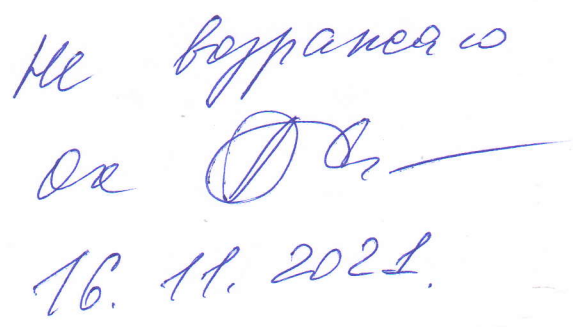 Не возражаю
16.11.2021.